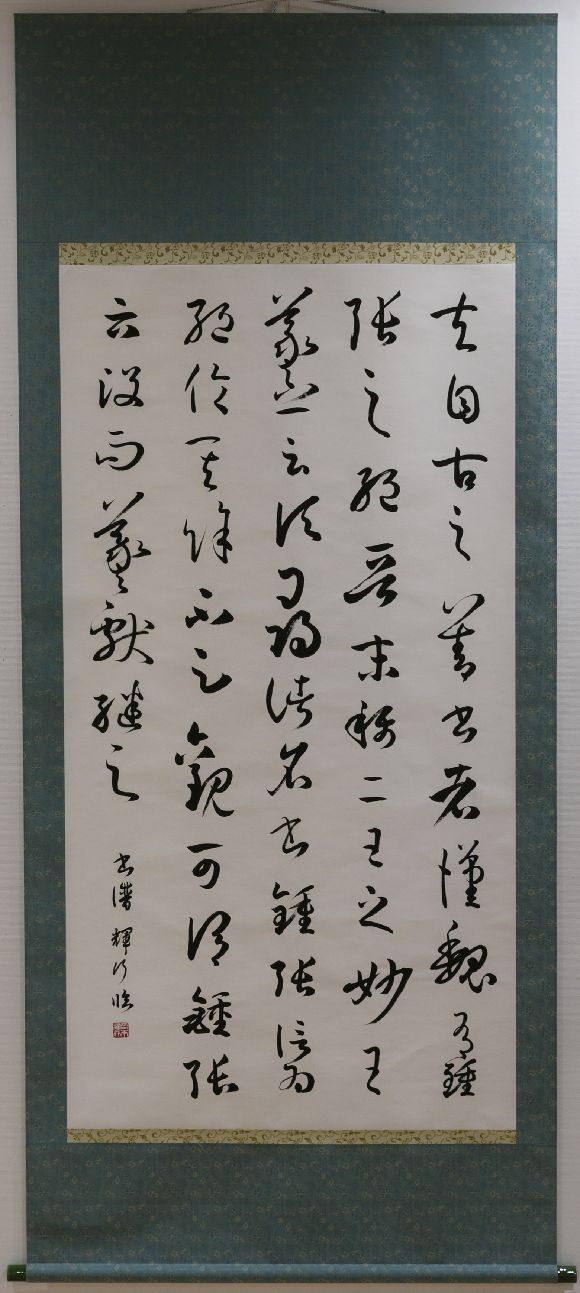 夫自古之善書者漢魏有鍾
張之絶晉末稱二王之妙王
羲之云頃尋諸名書鍾張信為
絶倫其餘不足觀可謂鍾張
云没而羲獻継之
書譜 輝 臨